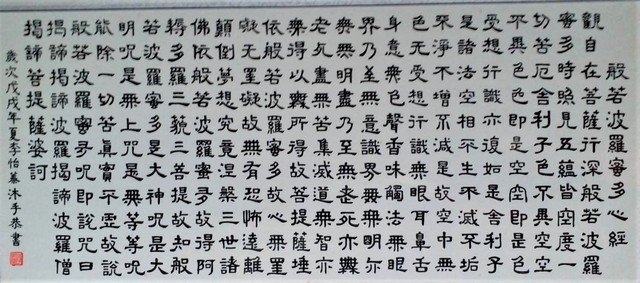 般若波羅蜜多心經
觀自在菩薩行深般若波羅
蜜多時照見五蘊皆空度一
切苦厄舍利子色不異空空
不異色色即是空空即是色
受想行識亦復如是舍利子
是諸法空相不生不滅不垢
不淨不增不減是故空中無
色無受想行識無眼耳鼻舌
身意無色聲香味觸法無眼
界乃至無意識界無無明亦
無無明盡乃至無老死亦無
老死盡無苦集滅道無智亦
無得以無所得故菩提薩埵
依般若波羅蜜多故心無罣
礙無罣礙故無有恐怖遠離
顛倒夢想究竟涅槃三世諸
佛依般若波羅蜜多故得阿
耨多羅三藐三菩提故知般
若波羅蜜多是大神咒是大
明咒是無上咒是無等等咒
能除一切苦真實不虛故說
般若波羅蜜多咒即說咒曰
揭諦揭諦波羅揭諦波羅僧
揭諦菩提薩婆訶
歲次戊戌年夏李怡蓁沐手恭書